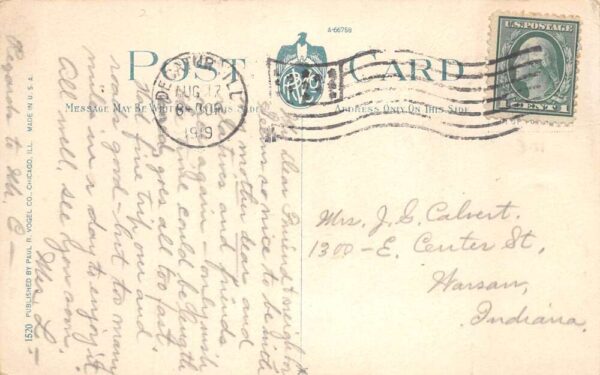 A-66758
POST CARD
MESSAGE MAY BE WRITTEN ON THIS SIDE
ADDRESS ONLY ON THIS SIDE
DECATUR, ILL
AUG 17
8-30P
1919
U.S. POSTAGE
1 CENT 1
My Dear Friend & neighbor
seems so nice to be with
my mother dear and
and friends
again - only wish
time could be length
goes all too fast.
Had fine trip over and
roads good - but too many
miles in a day to enjoy it
All well, see you soon.
Mrs L-
Regards to Mr. C-
Mrs. J. G. Calvert.
1300-E. Center St,
Warsaw,
Indiana.
1520 PUBLISHED BY PAUL R. VOGEL CO., CHICAGO, ILL.
MADE IN U.S.A.